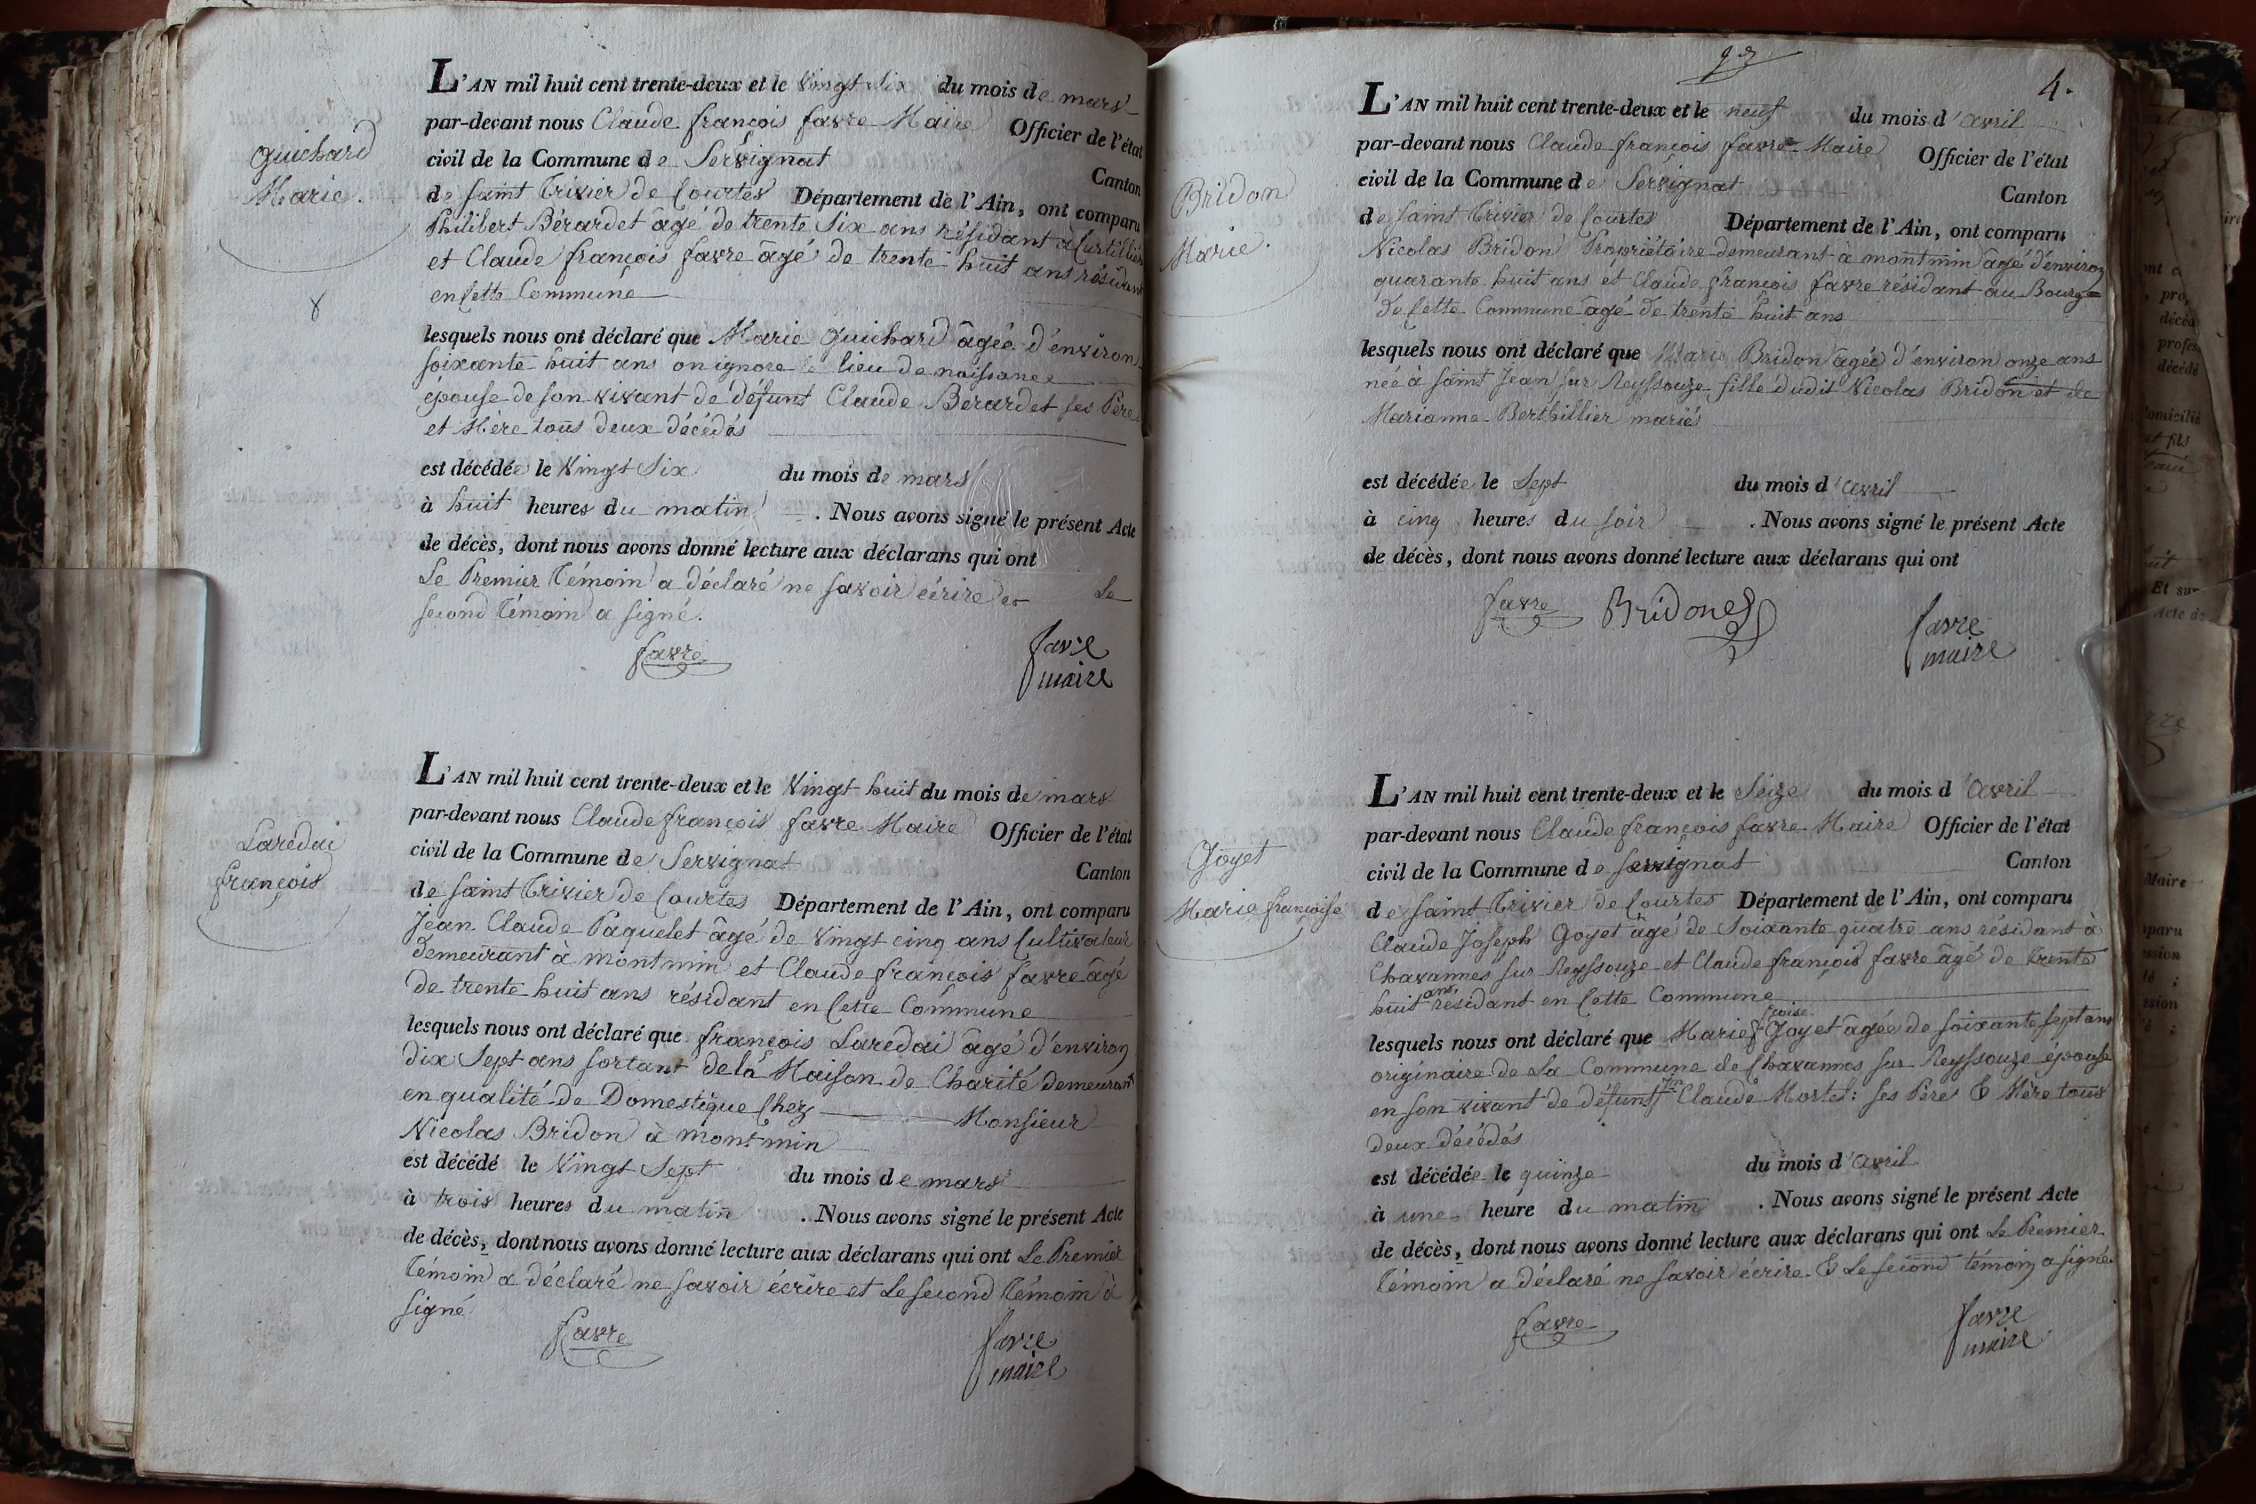 Guichard
Marie.
8
L'AN mil huit cent trente-deux et le vingt six du mois de mars
par-devant nous Claude françois favre Maire Officier de l'état
civil de la Commune de Servignat Canton
de saint Trivier de Courtes Département de l'Ain, ont comparu
Philibert Bérardet âgé de trente six ans résidant à
et Claude françois favre âgé de trente huit ans résidant
en Cette Commune
lesquels nous ont déclaré que Marie Guichard âgée d'environ
soixante huit ans on ignore le lieu de naissance
épouse de son vivant de défunt Claude Berardet ses Père
et Mère tous deux décédés
est décédée le vingt six du mois de mars
à huit heures du matin . Nous avons signé le présent Acte
de décès, dont nous avons donné lecture aux déclarans qui ont
Le Premier Témoin a déclaré ne savoir écrire et Le
second Témoin a signé.
favre
favre
maire
Laredai
françois
L'AN mil huit cent trente-deux et le vingt huit du mois de mars
par-devant nous Claude françois favre Maire Officier de l'état
civil de la Commune de Servignat Canton
de saint Trivier de Courtes Département de l'Ain, ont comparu
Jean Claude Paquelet âgé de vingt cinq ans Cultivateur
demeurant à montmin et Claude françois favre âgé
de trente huit ans résidant en Cette Commune
lesquels nous ont déclaré que françois Laredai âgé d'environ
dix sept ans sortant de la Maison de Charité demeurant
en qualité de Domestique Chez Monsieur
Nicolas Bridon à montmin
est décédé le vingt sept du mois de mars
à trois heures du matin . Nous avons signé le présent Acte
de décès, dont nous avons donné lecture aux déclarans qui ont Le Premier
Témoin a déclaré ne savoir écrire et Le second Témoin à
signé
favre
favre
maire
4.
Bridon
Marie.
L'AN mil huit cent trente-deux et le neuf du mois d'avril
par-devant nous Claude françois favre Maire Officier de l'état
civil de la Commune de Servignat Canton
de saint Trivier de Courtes Département de l'Ain, ont comparu
Nicolas Bridon Propriétaire demeurant à montmin âgé d'environ
quarante huit ans et Claude françois favre résidant au Bourg
de Cette Commune âgé de trente huit ans
lesquels nous ont déclaré que Marie Bridon âgée d'environ onze ans
née à saint Jean sur Reyssouze fille dudit Nicolas Bridon et de
Marianne Berthillier mariés
est décédée le sept du mois d'avril
à cinq heures du soir . Nous avons signé le présent Acte
de décès, dont nous avons donné lecture aux déclarans qui ont
favre Bridon
favre
maire
Goyet
Marie françoise
L'AN mil huit cent trente-deux et le seize du mois d'avril
par-devant nous Claude françois favre Maire Officier de l'état
civil de la Commune de servignat Canton
de saint Trivier de Courtes Département de l'Ain, ont comparu
Claude Joseph Goyet âgé de soixante quatre ans résidant à
Chavannes sur Reyssouze et Claude françois favre âgé de trente
huit ans résidant en Cette Commune
lesquels nous ont déclaré que Marie froise Goyet âgée de soixante sept ans
originaire de La Commune de Chavannes sur Reyssouze épouse
en son vivant de défunt Jn Claude Mortel: ses Père & Mère tous
deux décédés
est décédée le quinze du mois d'avril
à une heure du matin . Nous avons signé le présent Acte
de décès, dont nous avons donné lecture aux déclarans qui ont Le Premier
Témoin a déclaré ne savoir écrire & Le second témoin a signé.
favre
favre
maire